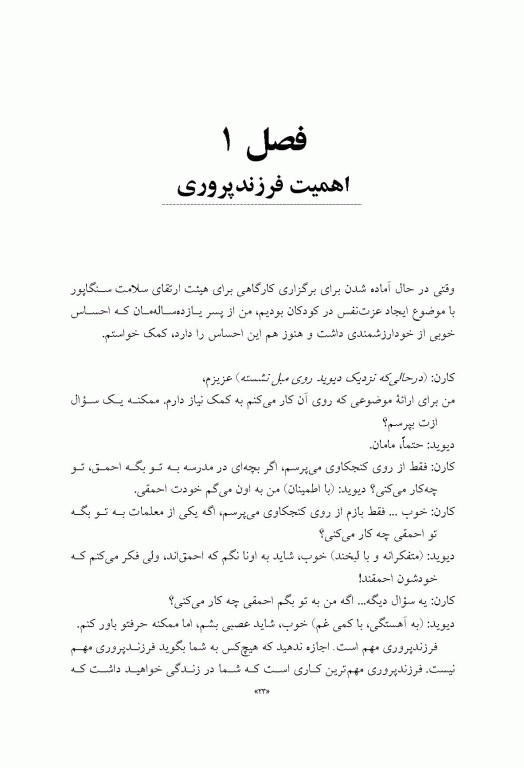 فصل ۱
اهمیت فرزندپروری
وقتی در حال آماده شدن برای برگزاری کارگاهی برای هیئت ارتقای سلامت سنگاپور
با موضوع ایجاد عزت‌نفس در کودکان بودیم، من از پسر یازده‌ساله‌مان که احساس
خوبی از خودارزشمندی داشت و هنوز هم این احساس را دارد، کمک خواستم.
کارن: (درحالی‌که نزدیک دیوید روی مبل نشسته) عزیزم،
من برای ارائهٔ موضوعی که روی آن کار می‌کنم به کمک نیاز دارم. ممکنه یک سؤال
ازت بپرسم؟
دیوید: حتماً، مامان.
کارن: فقط از روی کنجکاوی می‌پرسم، اگر بچه‌ای در مدرسه به تو بگه احمق، تو
چه‌کار می‌کنی؟ دیوید: (با اطمینان) من به اون می‌گم خودت احمقی.
کارن: خوب ... فقط بازم از روی کنجکاوی می‌پرسم، اگه یکی از معلمات به تو بگه
تو احمقی چه کار می‌کنی؟
دیوید: (متفکرانه و با لبخند) خوب، شاید به اونا نگم که احمق‌اند، ولی فکر می‌کنم که
خودشون احمقند!
کارن: یه سؤال دیگه... اگه من به تو بگم احمقی چه کار می‌کنی؟
دیوید: (به آهستگی، با کمی غم) خوب، شاید عصبی بشم، اما ممکنه حرفتو باور کنم.
فرزندپروری مهم است. اجازه ندهید که هیچ‌کس به شما بگوید فرزندپروری مهم
نیست. فرزندپروری مهم‌ترین کاری است که شما در زندگی خواهید داشت که
«۲۳»